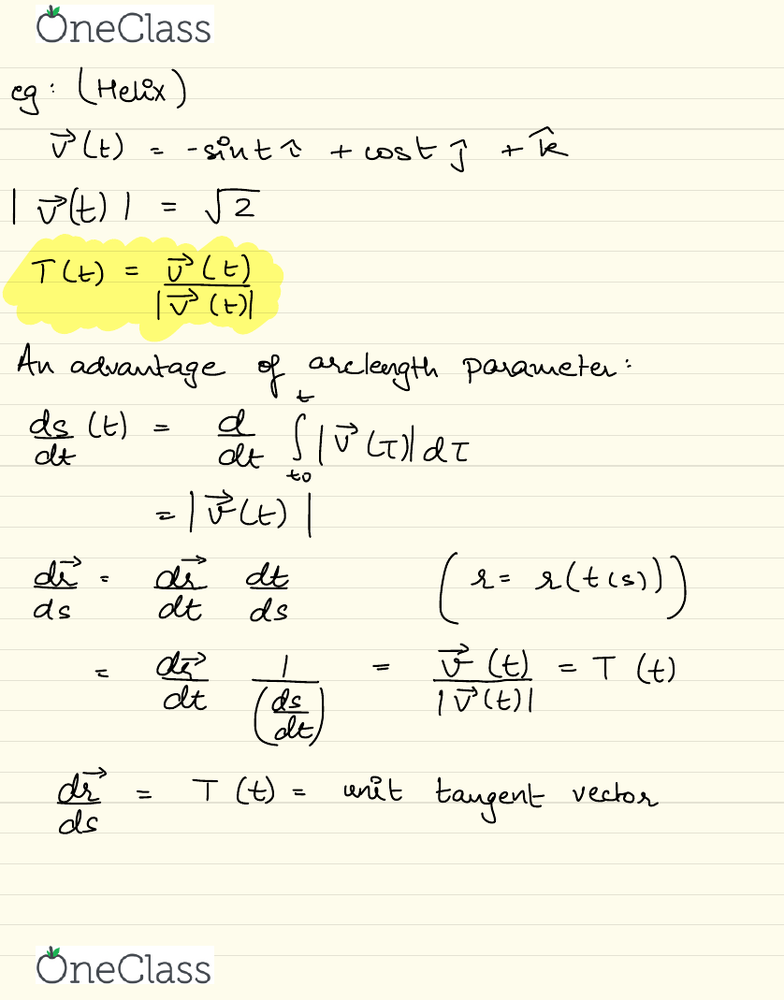 OneClass
eg: (Helix)
v⃗(t) = -sint î + cost ĵ + k̂
|v⃗(t)| = √2
T(t) = v⃗(t) / |v⃗(t)|
An advantage of arclength parameter:
ds/dt (t) = d/dt ∫_{t0}^{t} |v⃗(τ)| dτ
= |v⃗(t)|
dr⃗/ds = dr⃗/dt dt/ds (r = r(t(s)))
= dr⃗/dt 1/(ds/dt) = v⃗(t)/|v⃗(t)| = T(t)
dr⃗/ds = T(t) = unit tangent vector
OneClass